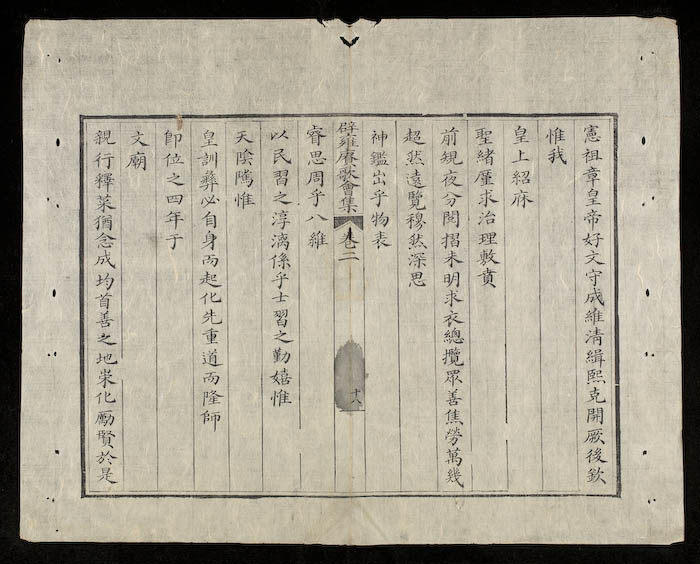 憲祖章皇帝好文守成維清緝熙克開厥後欽
惟我
皇上紹庥
聖緒厪求治理敷賁
前規夜分閱摺未明求衣總攬眾善焦勞萬幾
超然遠覽穆然深思
神鑑出乎物表
辟雍賡歌會集 卷二 十八
睿思周乎八維
以民習之淳漓係乎士習之勤嬉惟
天陰隲惟
皇訓彝必自身而起化先重道而隆師
即位之四年于
文廟
親行釋菜猶念成均首善之地崇化勵賢於是